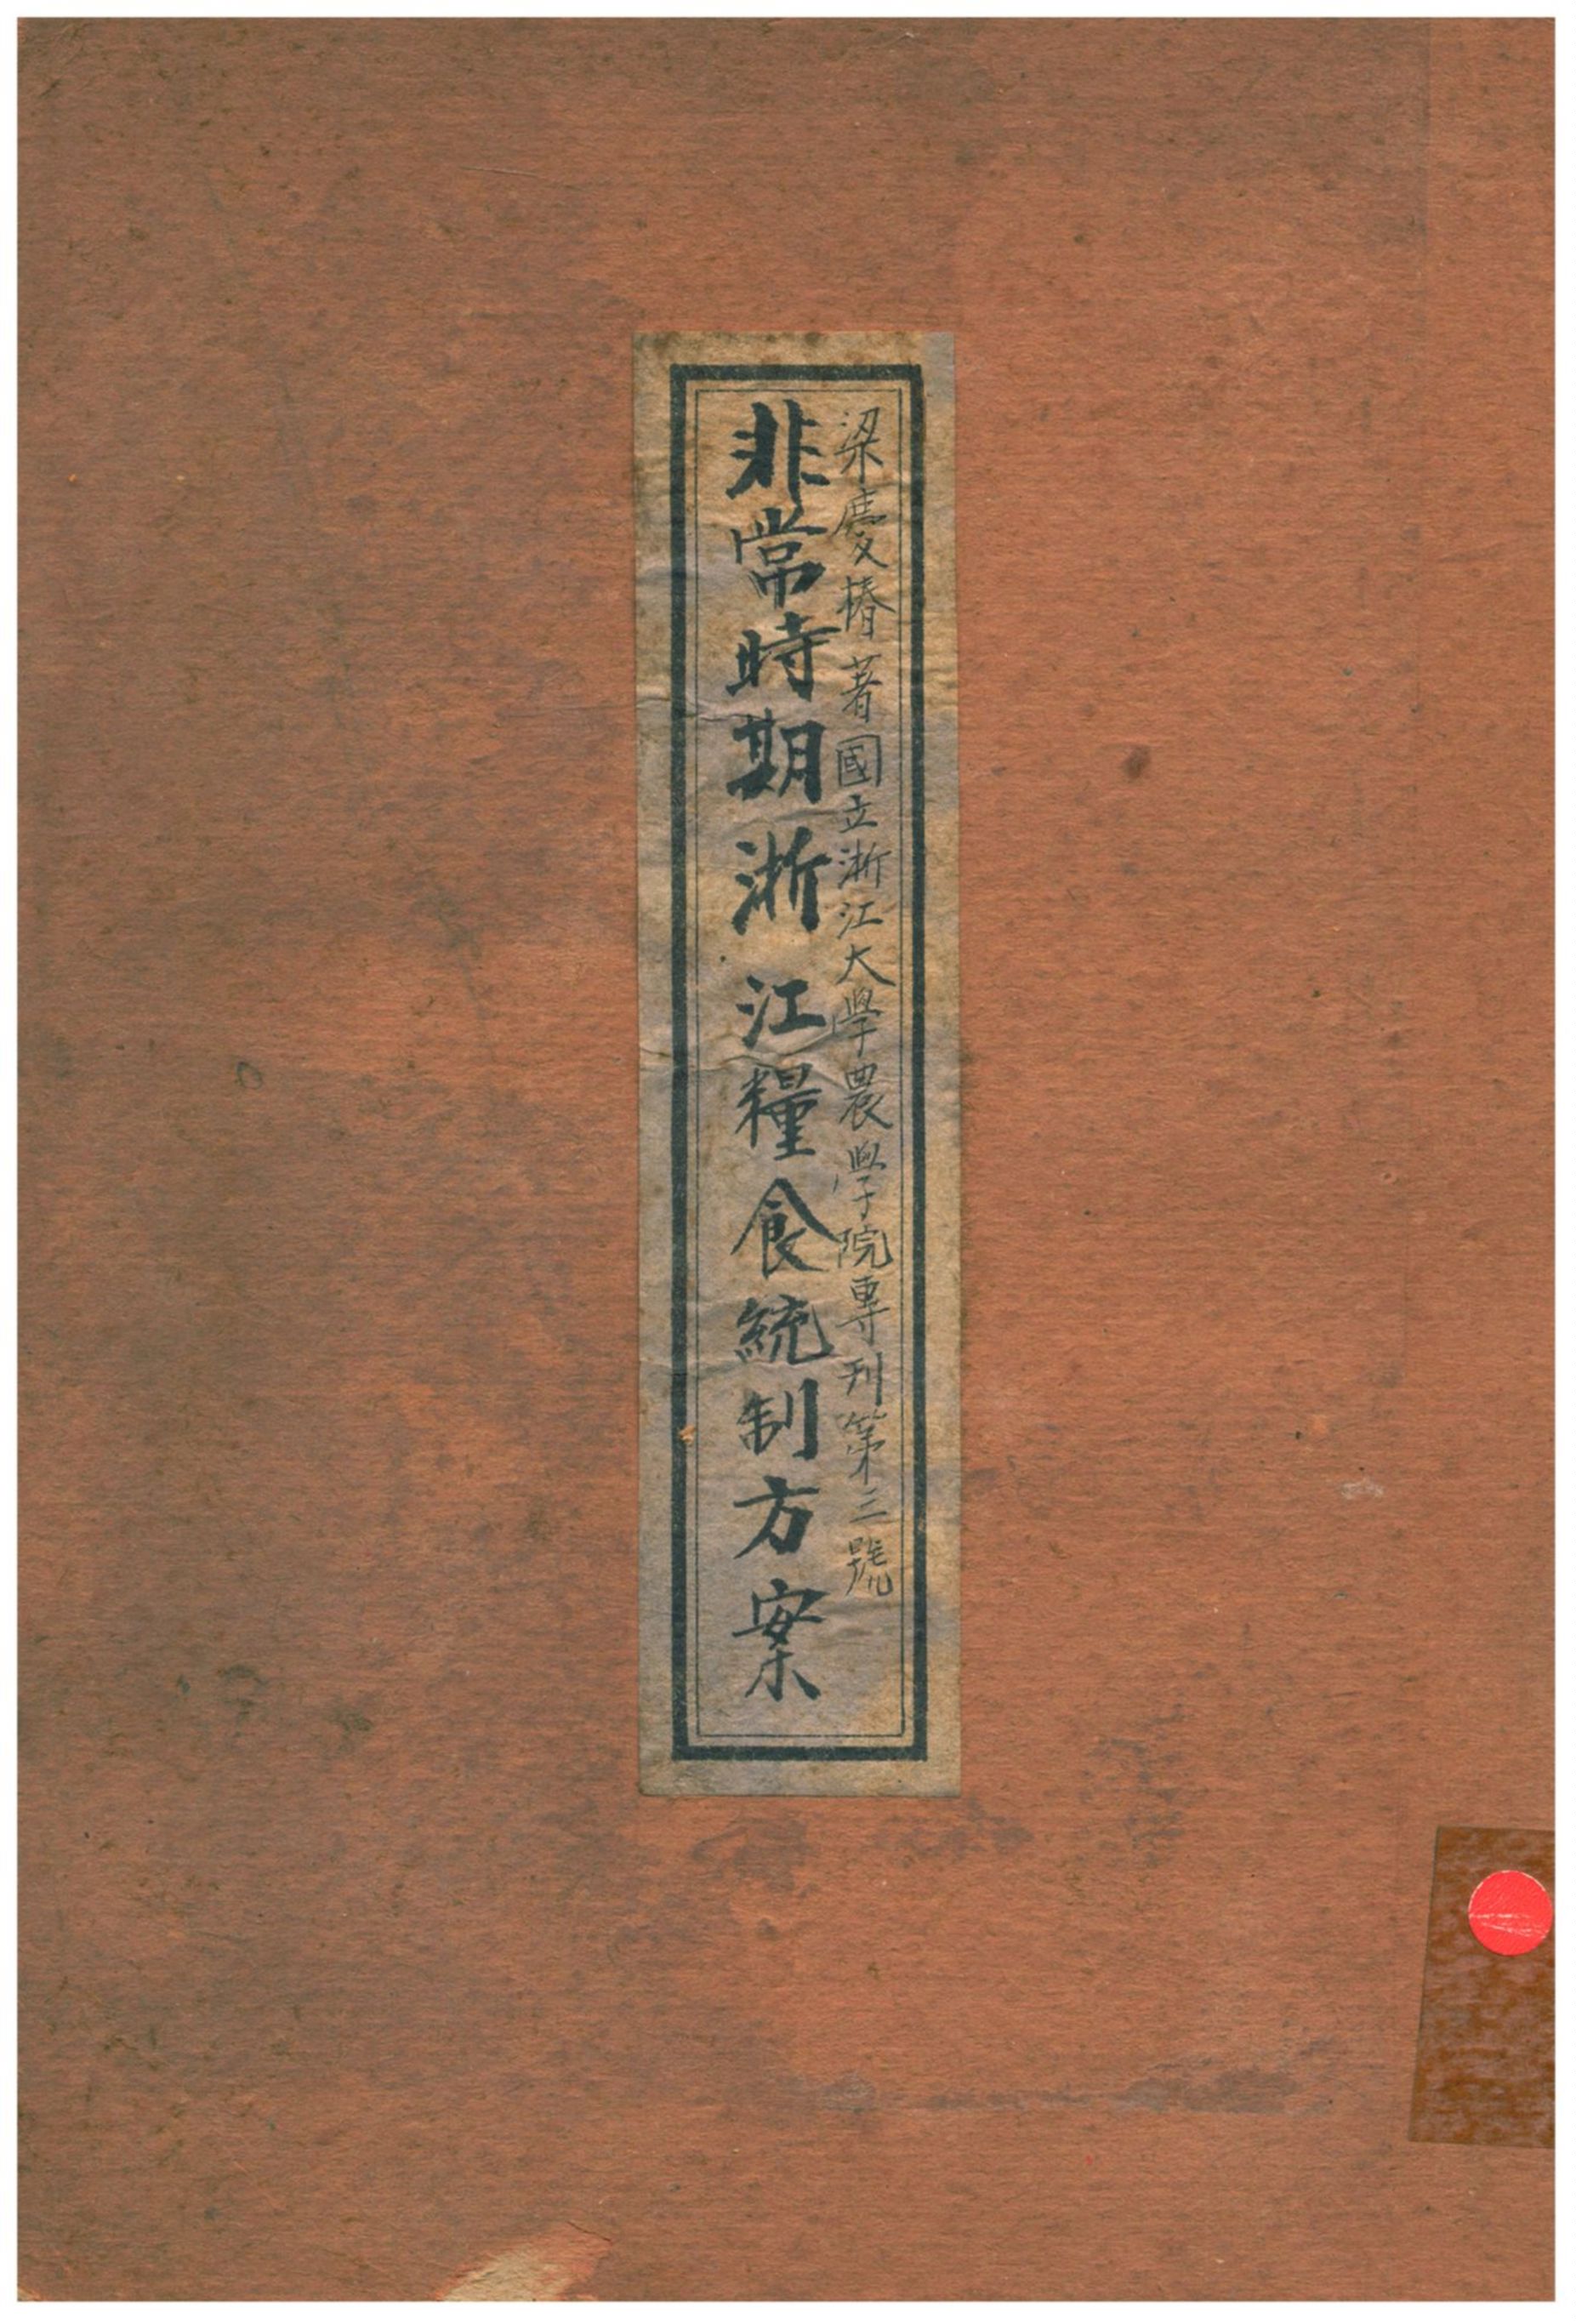 梁慶椿著國立浙江大學農學院專刊第三號
非常時期浙江糧食統制方案